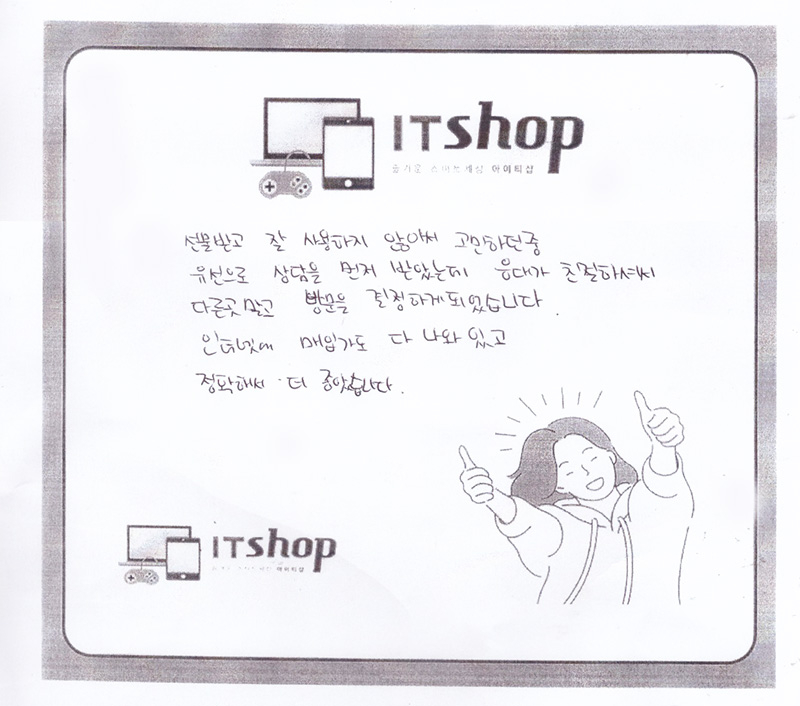 ITshop
즐거운 스마트세상 아이티샵
선물받고 잘 사용하지 않아서 고민하던중
유선으로 상담을 먼저 받았는데 응대가 친절하셔서
다른곳 말고 방문을 결정하게되었습니다.
인터넷에 매입가도 다 나와 있고
정확해서 더 좋았습니다.
ITshop
아이티샵